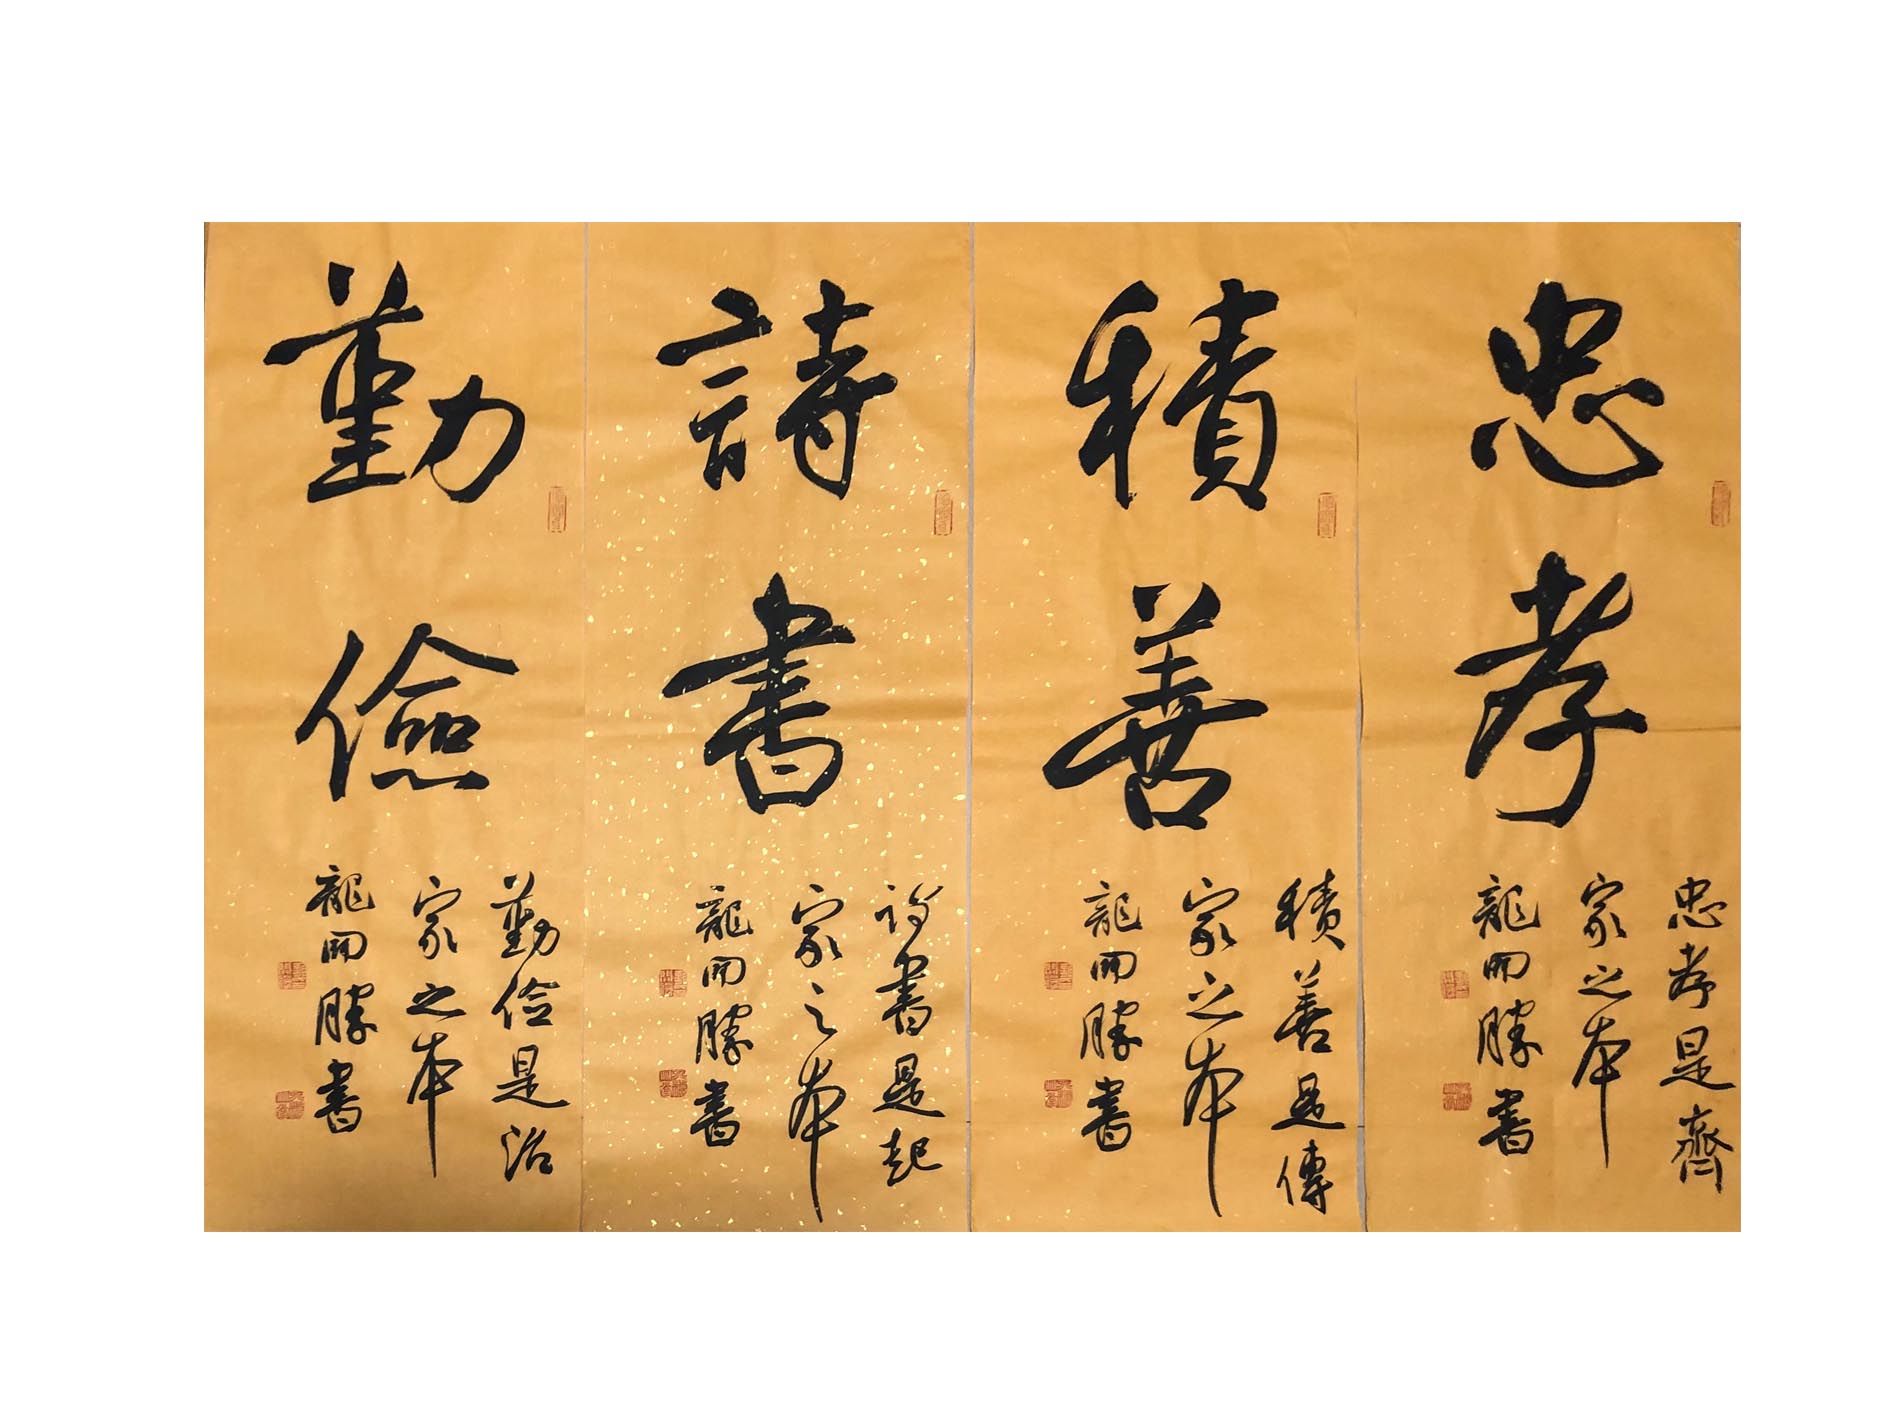 忠孝
忠孝是齊
家之本
龍開勝書
積善
積善是傳
家之本
龍開勝書
詩書
詩書是起
家之本
龍開勝書
勤儉
勤儉是治
家之本
龍開勝書